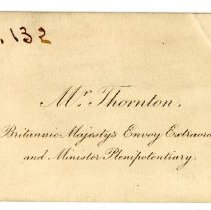 . 132
Mr. Thornton,
Britannic Majesty's Envoy Extraor
and Minister Plenipotentiary.